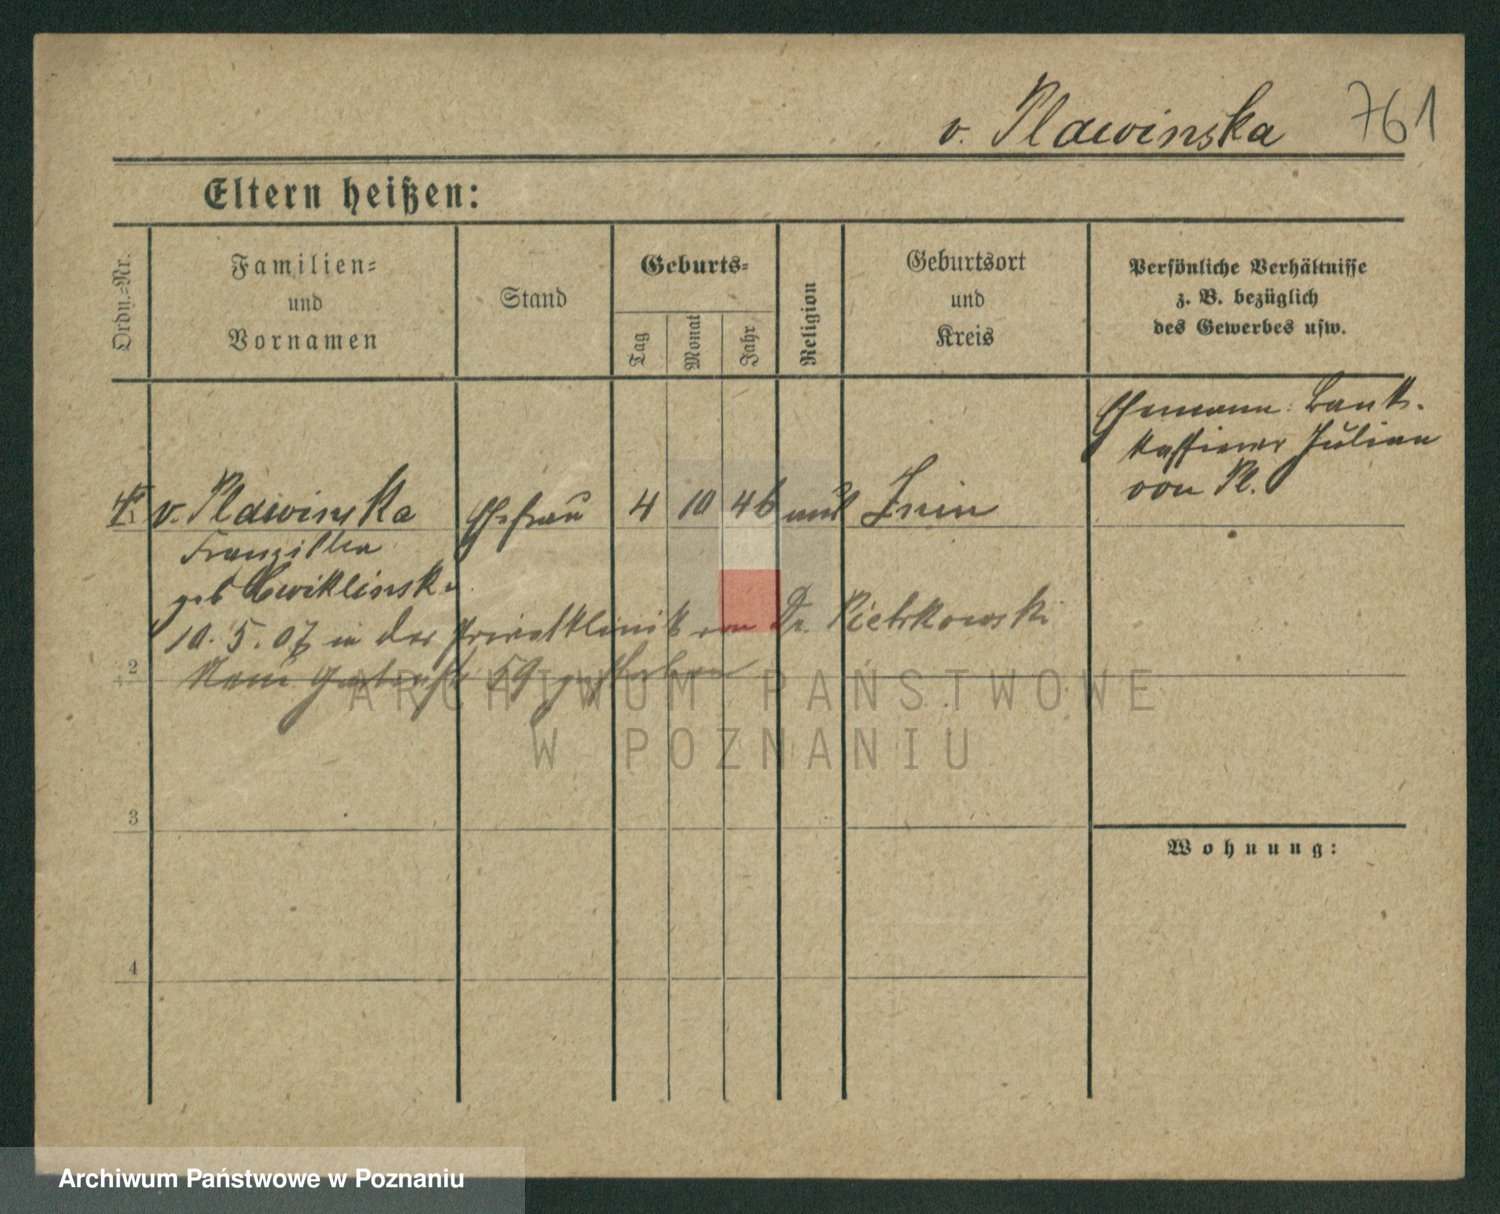 v. Plawinska 761
Eltern heißen:
Ordn.-Nr.
Familien-
und
Vornamen
Stand
Geburts-
Tag
Monat
Jahr
Religion
Geburtsort
und
Kreis
Persönliche Verhältnisse
z. B. bezüglich
des Gewerbes usw.
Ehemann: Bank-
kassierer Julian
von Pl.
1 v. Plawinska Ehefrau 4 10 46 Znin
Franziska
geb Cwiklinska
10. 5. 07 in der Privatklinik von Dr. Pietrkowski
2 59 gestorben
3
4
Wohnung:
ARCHIWUM PAŃSTWOWE
W POZNANIU
Archiwum Państwowe w Poznaniu